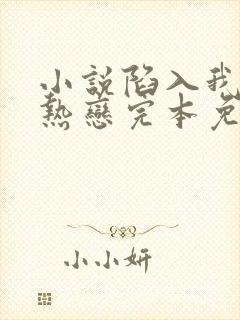 小說陷入我
熱戀完本免
小小妍